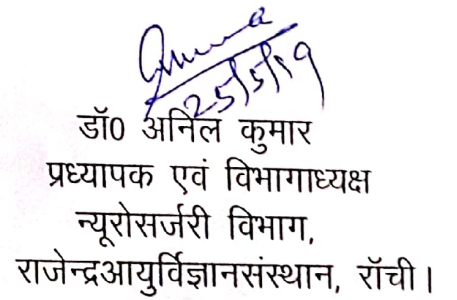 25/5/19
डॉ0 अनिल कुमार
प्रध्यापक एवं विभागाध्यक्ष
न्यूरोसर्जरी विभाग,
राजेन्द्रआयुर्विज्ञानसंस्थान, रॉची।